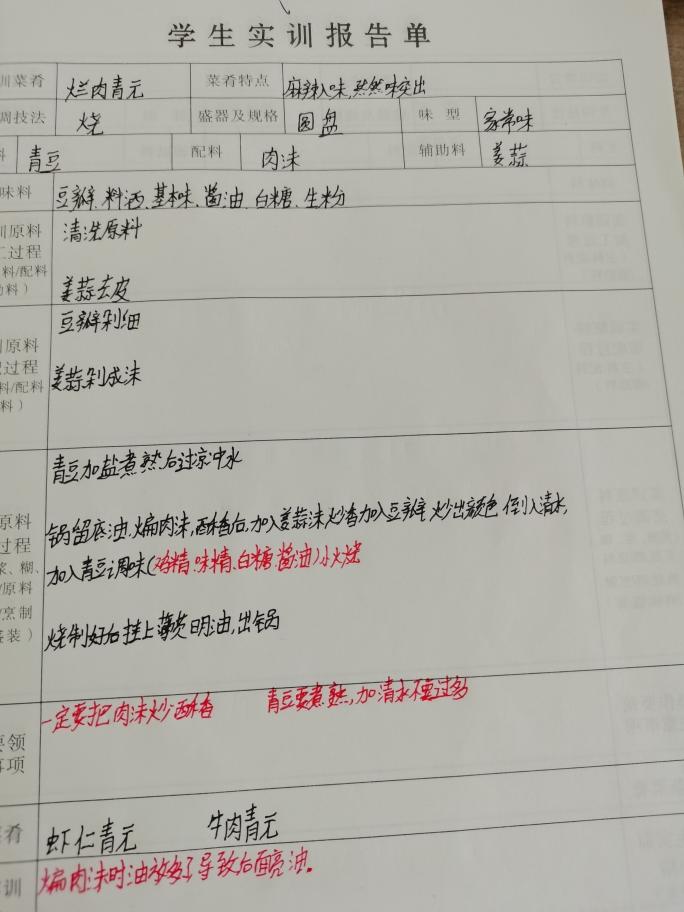 学生实训报告单
训菜肴 烂肉青元 菜肴特点 麻辣入味,然然味突出
调技法 烧 盛器及规格 圆盘 味型 家常味
料 青豆 配料 肉沫 辅助料 姜蒜
味料 豆瓣、料酒、基本味、酱油、白糖、生粉
训原料 清洗原料
工过程
料/配料
助料） 姜蒜去皮
训原料 豆瓣剁细
配过程
料/配料 姜蒜剁成沫
料）
青豆加盐煮熟后过凉冲水
原料 锅留底油,煸肉沫,酥香后,加入姜蒜沫炒香加入豆瓣炒出颜色倒入清水,
过程
浆、糊、 加入青豆调味(鸡精、味精、白糖、酱油)小火烧
/原料
/烹制
盛装） 烧制好后挂上薄芡明油,出锅
一定要把肉沫炒酥香 青豆要煮熟,加清水不要过多
要领
事项
肴 虾仁青元 牛肉青元
训 煸肉沫时油放多了导致后面亮油。